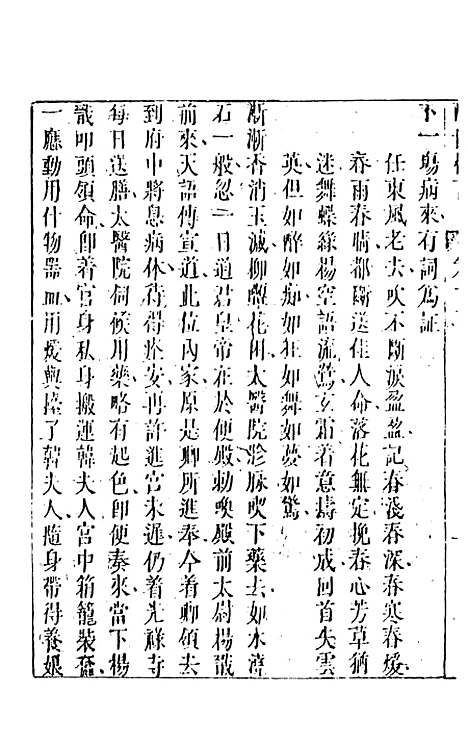 下一塲病來有詞爲証
任東風老去吹不斷淚盈盈記春淺春深春寒春煖
春雨春晴都斷送佳人命落花無定挽春心芳草猶
迷舞蝶綠楊空語流鶯玄霜着意擣初成回首失雲
英但如醉如痴如狂如舞如夢如驚
漸漸香消玉減柳顰花困太醫院診脉吃下藥去如水澆
石一般忽一日道君皇帝在於便殿勅喚殿前太尉楊戩
前來天語傳宣道此位內家原是卿所進奉今着卿領去
到府中將息病体待得痊安再許進宮未遲仍着光祿寺
每日送膳太醫院伺候用藥略有起色卽便奏來當下楊
戩叩頭領命卽着官身私身搬運韓夫人宮中箱籠裝奩
一應動用什物器皿用煖輿擡了韓夫人隨身帶得養娘